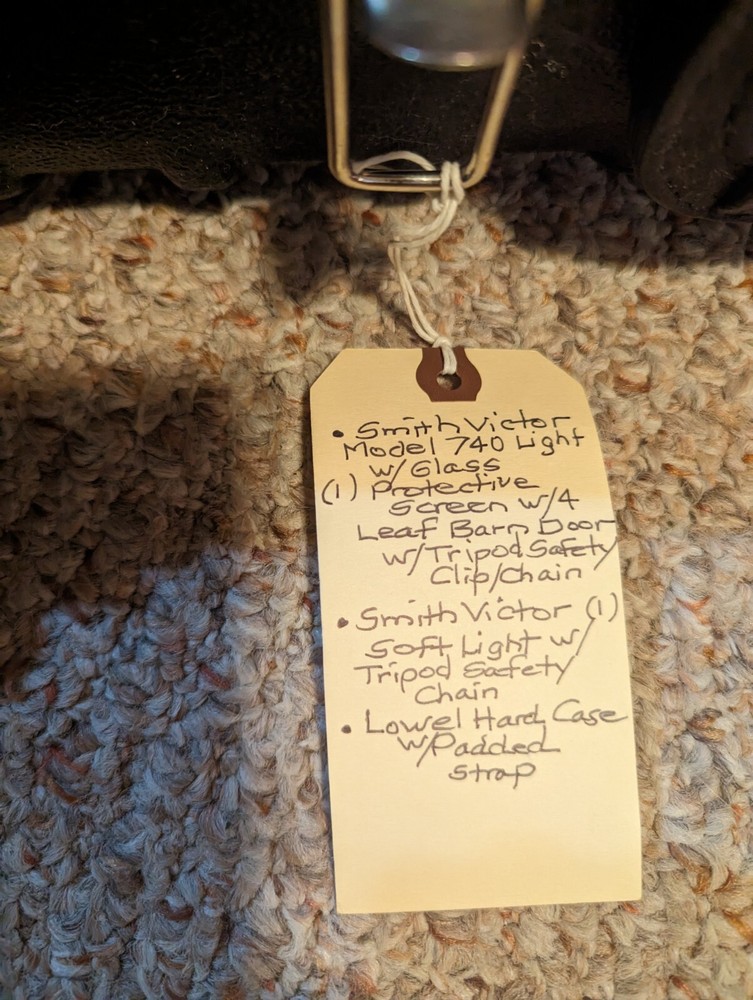 • Smith Victor
Model 740 Light
w/Glass
(1) Protective
Screen w/4
Leaf Barn Door
w/Tripod Safety
Clip/Chain
• Smith Victor (1)
Soft Light w/
Tripod Safety
Chain
• Lowel Hard Case
w/Padded
Strap